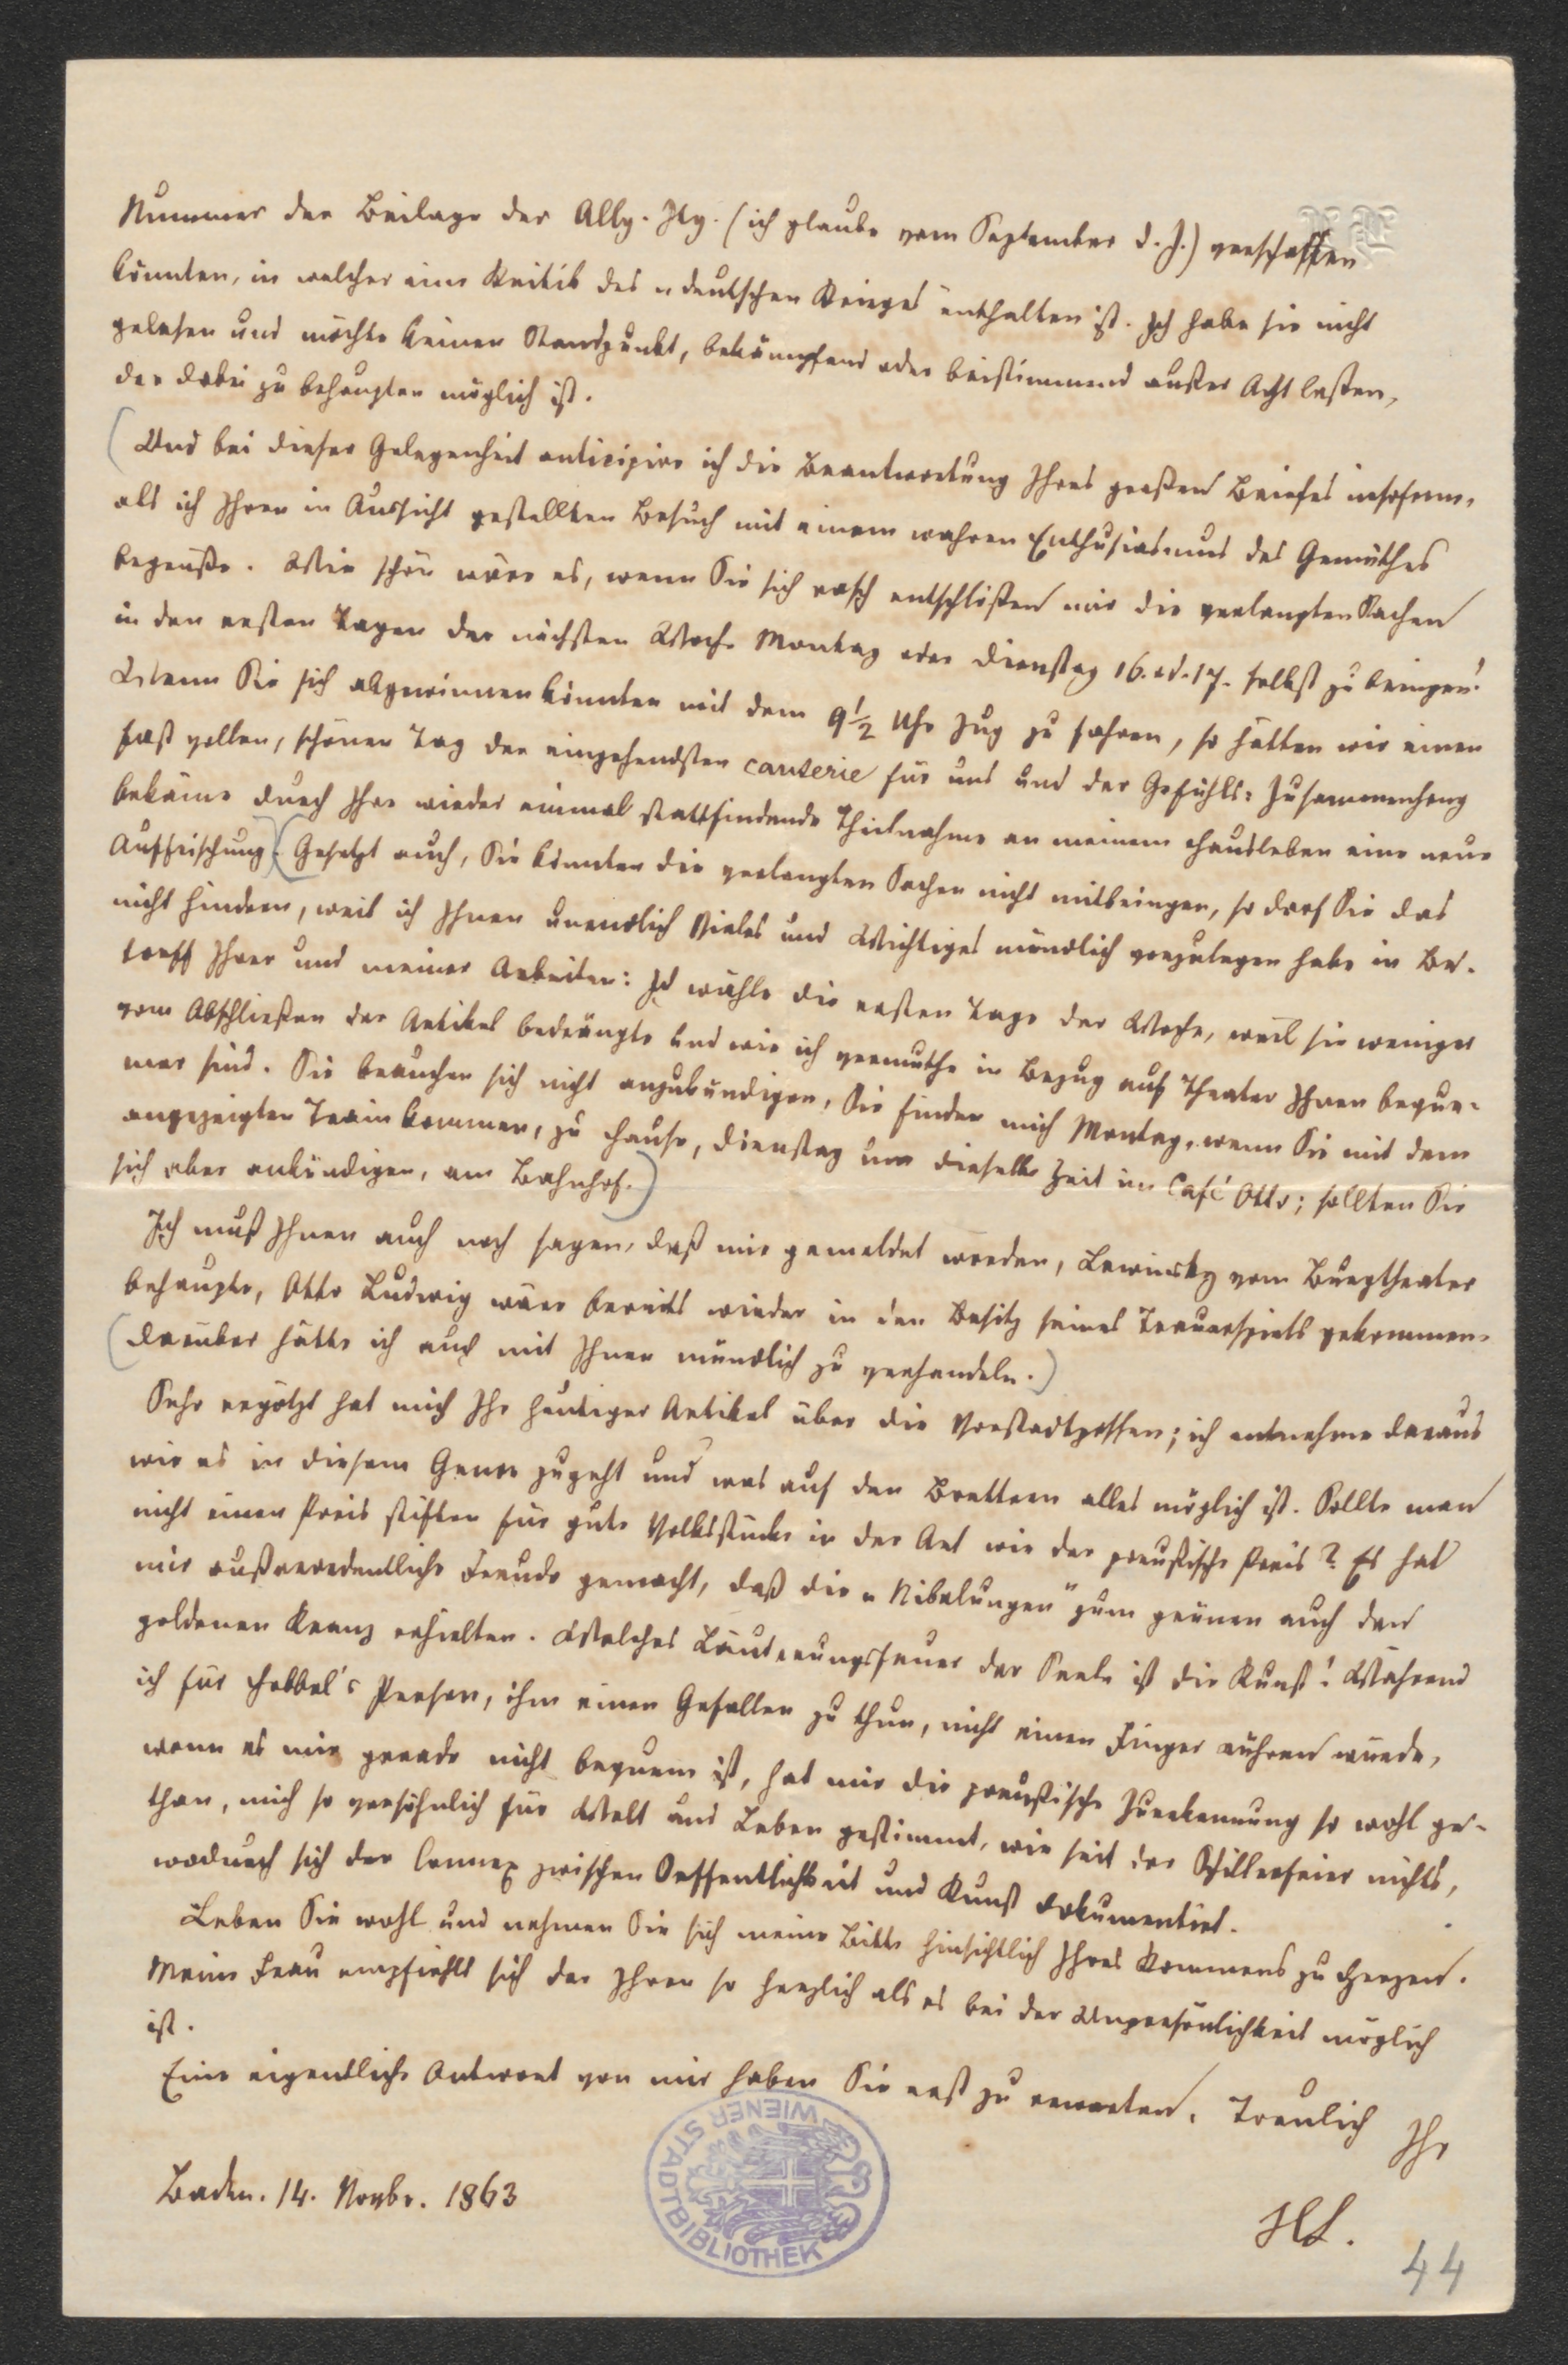 Nummer der Beilage der Allg. Ztg. (ich glaube vom September d. J.) verschaffen
könnten, in welcher eine Kritik des „deutschen Krieges" enthalten ist. Ich habe sie nicht
gelesen und möchte keinen Standpunkt, bekämpfend oder beistimmend außer Acht lassen,
der dabei zu behaupten möglich ist.
(Und bei dieser Gelegenheit anticipire ich die Beantwortung Ihres großen Briefes insofern,
als ich Ihren in Aussicht gestellten Besuch mit einem wahren Enthusiasmus des Gemüthes
begrüße. Wie schön wäre es, wenn Sie sich rasch entschlößen mir die verlangten Sachen
in den ersten Tagen der nächsten Woche Montag oder Dienstag 16. od. 17. selbst zu bringen!
Wenn Sie sich abgewinnen könnten mit dem 9½ Uhr Zug zu fahren, so hätten wir einen
fast vollen, schönen Tag der eingehendsten causerie für uns und der Gefühls-Zusammenhang
bekäme durch Ihre wieder einmal stattfindende Theilnahme an meinem Hausleben eine neue
Auffrischung.) (Gesetzt auch, Sie könnten die verlangten Sachen nicht mitbringen, so darf Sie das
nicht hindern, weil ich Ihnen unendlich Vieles und Wichtiges mündlich vorzulegen habe in Be-
treff Ihrer und meiner Arbeiten: Ich wähle die ersten Tage der Woche, weil sie weniger
vom Abschließen der Artikel bedrängte und wie ich vermuthe in Bezug auf Theater Ihnen beque-
mer sind. Sie brauchen sich nicht anzukündigen, Sie finden mich Montag, wenn Sie mit dem
angezeigten Train kommen, zu Hause, Dienstag um dieselbe Zeit im Café Otto; sollten Sie
sich aber ankündigen, am Bahnhof.)
Ich muß Ihnen auch noch sagen, daß mir gemeldet worden, Lewinsky vom Burgtheater
behaupte, Otto Ludwig wäre bereits wieder in den Besitz seines Trauerspiels gekommen.
(Darüber hätte ich auch mit Ihnen mündlich zu verhandeln.)
Sehr ergötzt hat mich Ihr heutiger Artikel über die Vorstadtpossen; ich entnehme daraus
wie es in diesem Genre zugeht und was auf den Brettern alles möglich ist. Sollte man
nicht einen Preis stiften für gute Volksstücke in der Art wie der preußische Preis? Es hat
mir außerordentliche Freude gemacht, daß die „Nibelungen" zum grünen auch den
goldenen Kranz erhielten. Welches Läuterungsfeuer der Seele ist die Kunst! Während
ich für Hebbel's Person, ihm einen Gefallen zu thun, nicht einen Finger rühren würde,
wenn es mir gerade nicht bequem ist, hat mir die preußische Zuerkennung so wohl ge-
than, mich so versöhnlich für Welt und Leben gestimmt, wie seit der Schillerfeier nichts,
wodurch sich der Connex zwischen Oeffentlichkeit und Kunst dokumentirt.
Leben Sie wohl und nehmen Sie sich meine Bitte hinsichtlich Ihres Kommens zu Herzen.
Meine Frau empfiehlt sich der Ihren so herzlich als es bei der Unpersönlichkeit möglich
ist.
Eine eigentliche Antwort von mir haben Sie erst zu erwarten. Treulich
Ihr
Baden. 14. Novbr. 1863
HL.
WIENER STADTBIBLIOTHEK
44